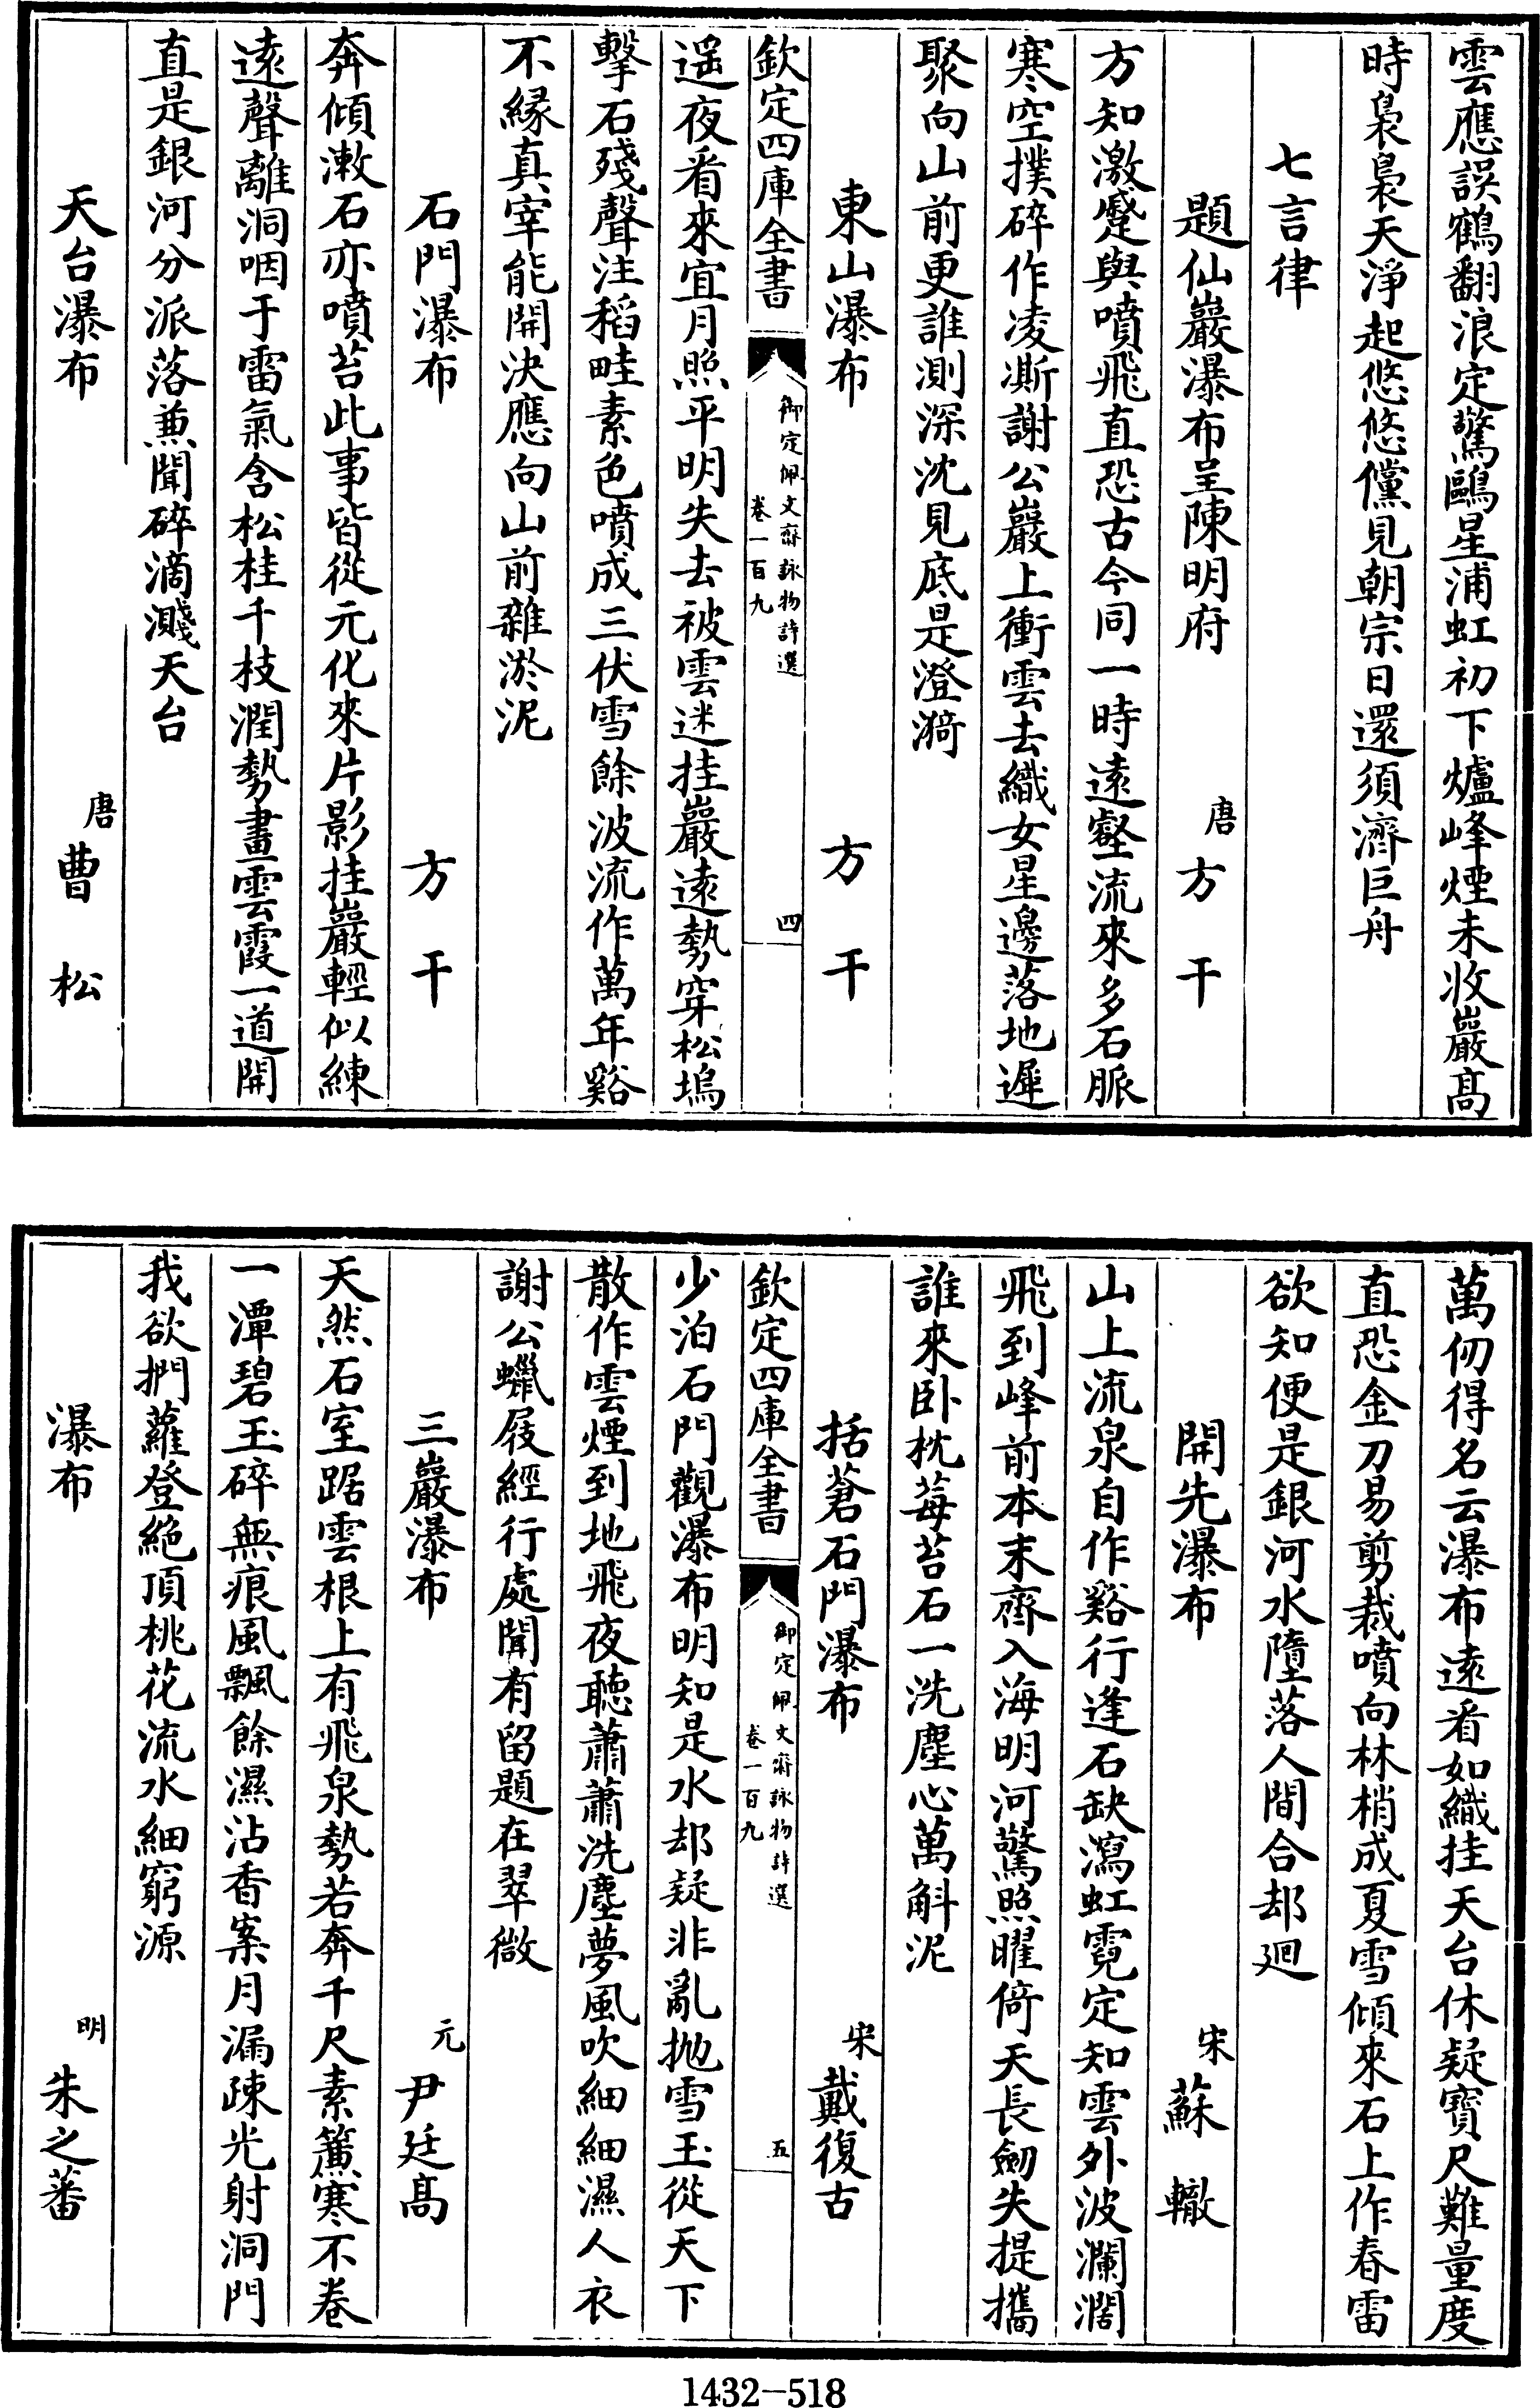 雲應誤鶴翻浪定驚鷗星浦虹初下爐峰煙未收巖髙
時裊裊天淨起悠悠儻見朝宗日還須濟巨舟
七言律
題仙巖瀑布呈陳明府 唐方干
方知激蹙與噴飛直恐古今同一時遠壑流來多石脈
寒空撲碎作凌澌謝公巖上衝雲去織女星邊落地遲
聚向山前更誰測深沈見底是澄漪
東山瀑布 方干
欽定四庫全書 御定佩文齋詠物詩選 卷一百九 四
遥夜看來宜月照平明失去被雲迷挂巖遠勢穿松塢
擊石殘聲注稻畦素色噴成三伏雪餘波流作萬年谿
不緣真宰能開決應向山前雜淤泥
石門瀑布 方干
奔傾漱石亦噴苔此事皆從元化來片影挂巖輕似練
遠聲離洞咽于雷氣含松桂千枝潤勢畫雲霞一道開
直是銀河分派落兼聞碎滴濺天台
天台瀑布 唐曹松
萬仞得名云瀑布遠看如織挂天台休疑寶尺難量度
直恐金刀易剪裁噴向林梢成夏雪傾來石上作春雷
欲知便是銀河水墮落人間合却迴
開先瀑布 宋蘇轍
山上流泉自作谿行逢石缺瀉虹霓定知雲外波瀾濶
飛到峰前本末齊入海明河驚照曜倚天長劒失提攜
誰來卧枕莓苔石一洗塵心萬斛泥
括蒼石門瀑布 宋戴復古
欽定四庫全書 御定佩文齋詠物詩選 卷一百九 五
少泊石門觀瀑布明知是水却疑非亂抛雪玉從天下
散作雲煙到地飛夜聽蕭蕭洗塵夢風吹細細濕人衣
謝公蠟屐經行處聞有留題在翠微
三巖瀑布 元尹廷髙
天然石室踞雲根上有飛泉勢若奔千尺素簾寒不卷
一潭碧玉碎無痕風飄餘濕沾香案月漏疎光射洞門
我欲捫蘿登絶頂桃花流水細窮源
瀑布 明朱之蕃
1432-518